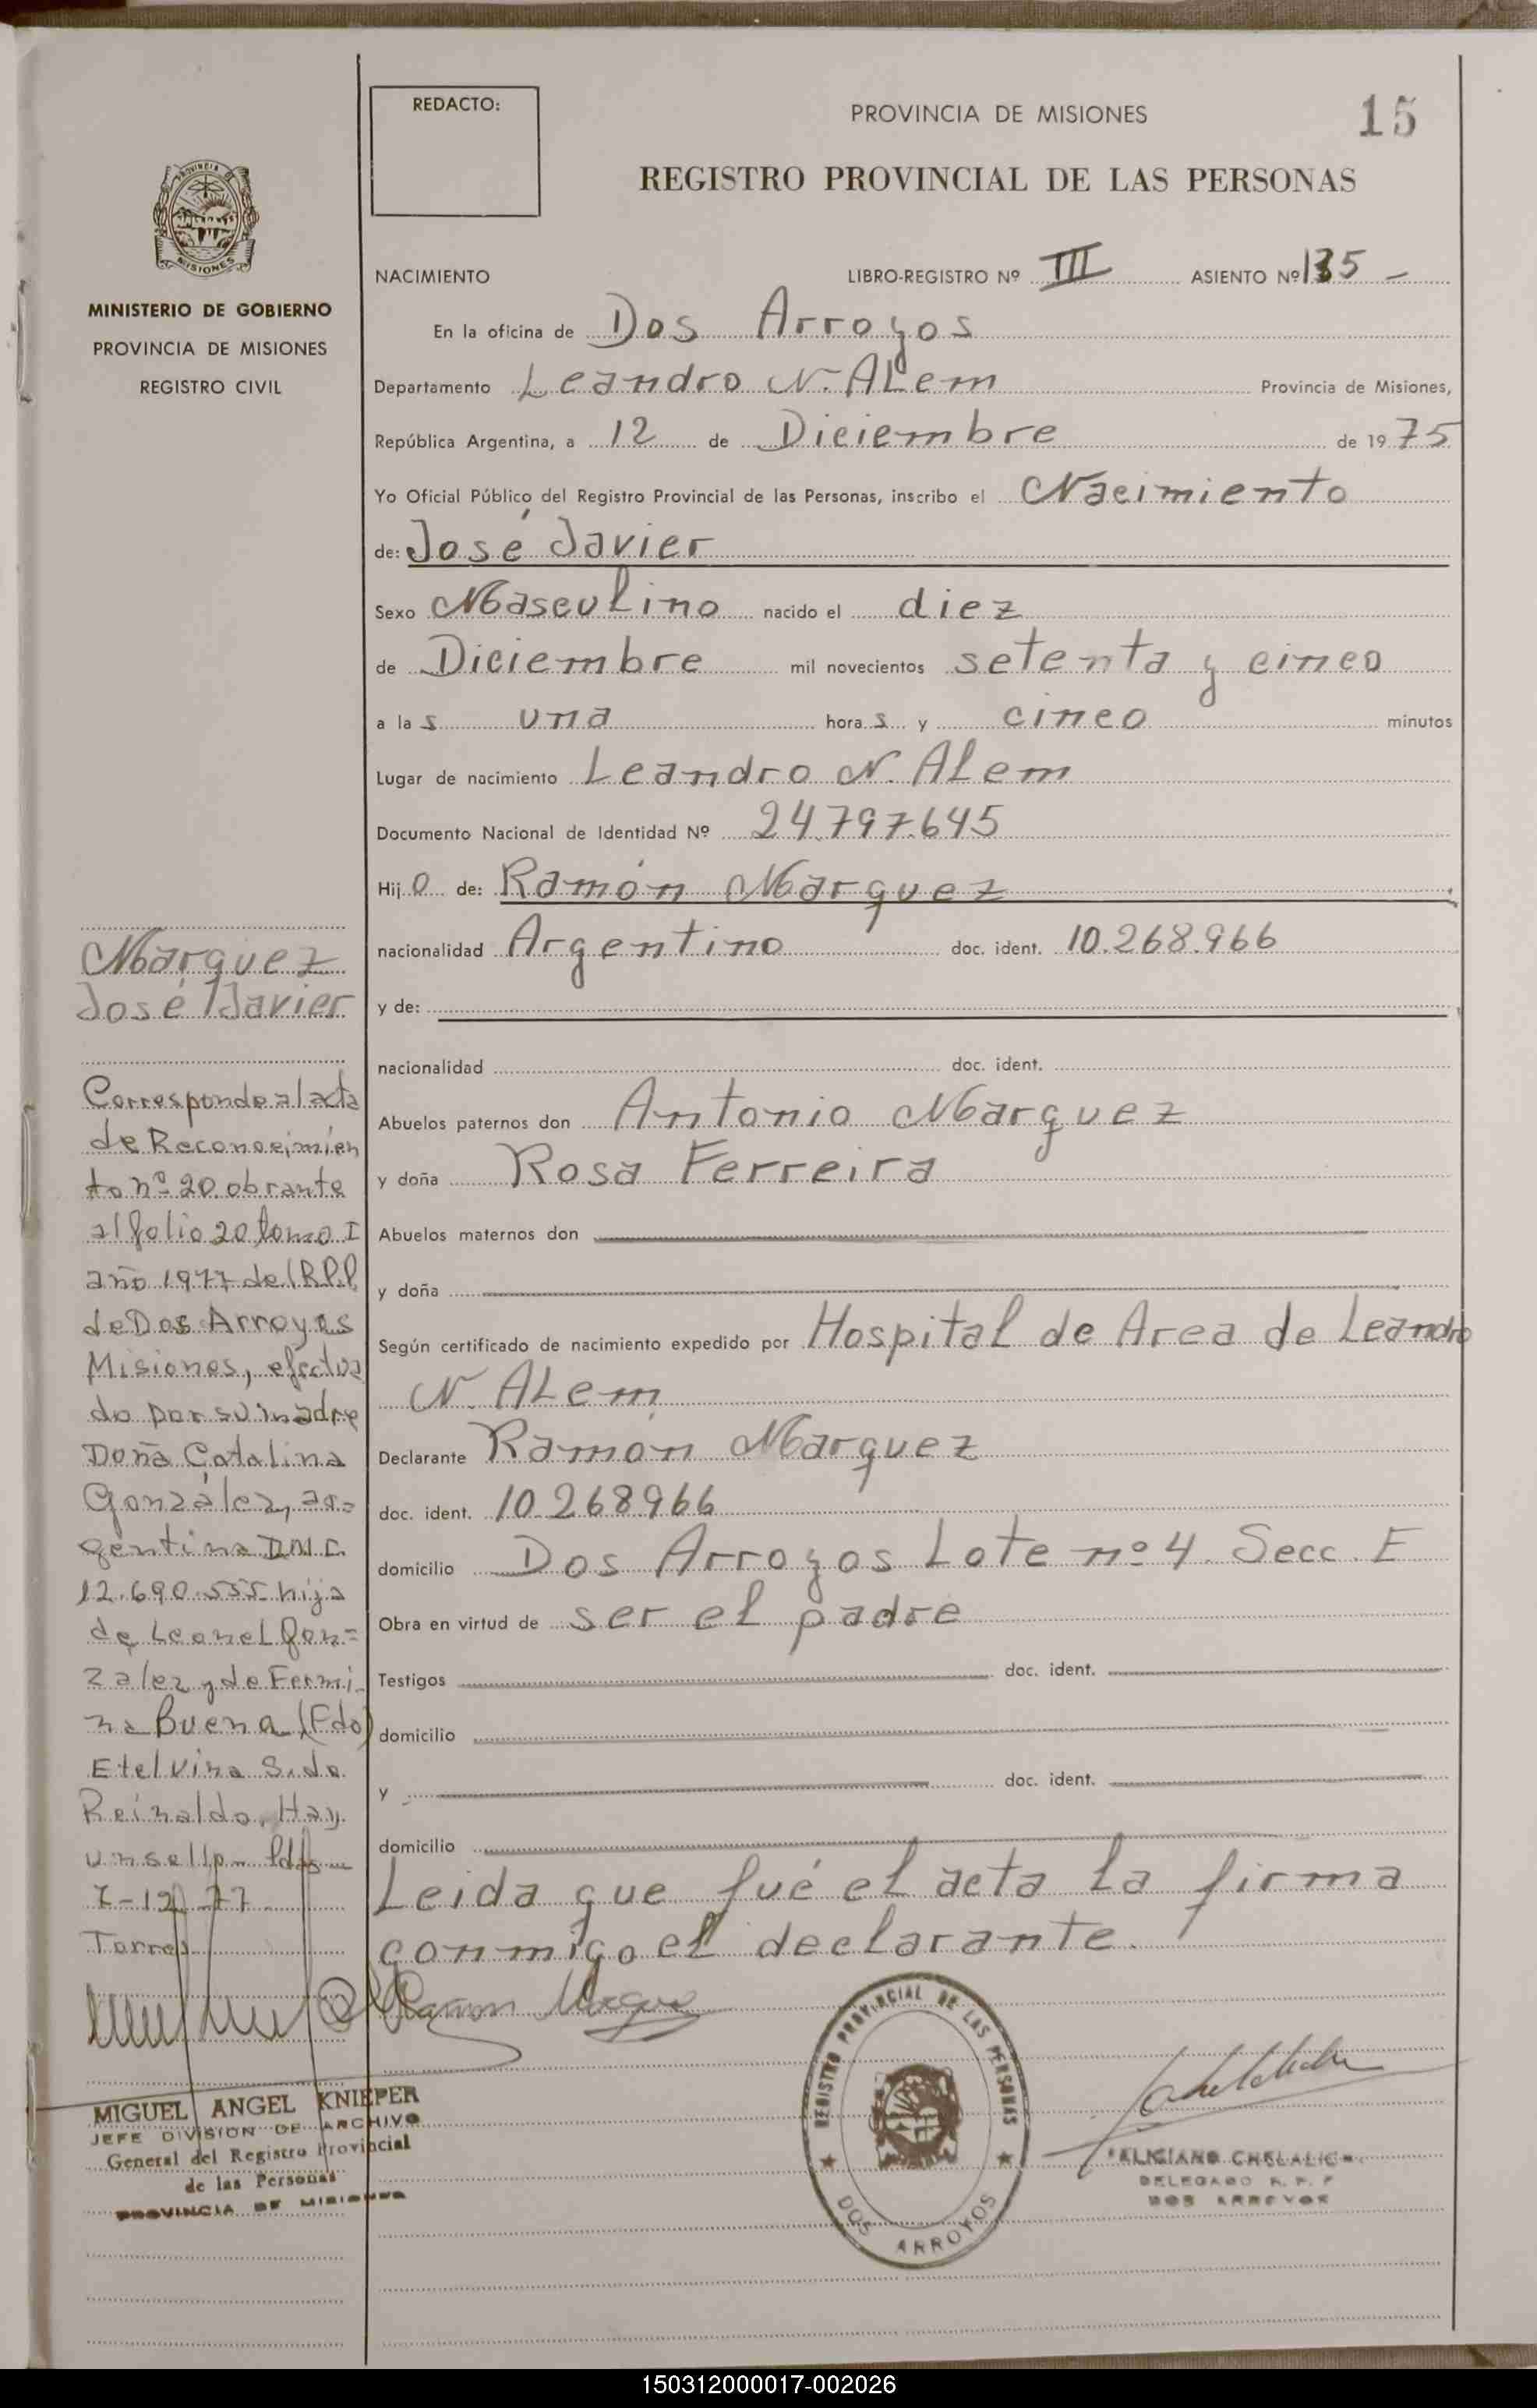 REDACTO:
PROVINCIA DE MISIONES
15
REGISTRO PROVINCIAL DE LAS PERSONAS
PROVINCIA DE
MISIONES
MINISTERIO DE GOBIERNO
PROVINCIA DE MISIONES
REGISTRO CIVIL
NACIMIENTO LIBRO-REGISTRO Nº III ASIENTO Nº 135 -
En la oficina de Dos Arroyos
Departamento Leandro N. ALem Provincia de Misiones,
República Argentina, a 12 de Diciembre de 1975
Yo Oficial Público del Registro Provincial de las Personas, inscribo el Nacimiento
de: José Javier
Sexo Masculino nacido el diez
de Diciembre mil novecientos setenta y cinco
a las una horas y cinco minutos
Lugar de nacimiento Leandro N. ALem
Documento Nacional de Identidad Nº 24.797.645
Hijo de: Ramón Marquez
nacionalidad Argentino doc. ident. 10.268.966
y de:
nacionalidad doc. ident.
Abuelos paternos don Antonio Marquez
y doña Rosa Ferreira
Abuelos maternos don
y doña
Según certificado de nacimiento expedido por Hospital de Area de Leandro
N. ALem
Declarante Ramón Marquez
doc. ident. 10.268966
domicilio Dos Arroyos Lote nº 4. Secc. E
Obra en virtud de ser el padre
Testigos doc. ident.
domicilio
y doc. ident.
domicilio
Leida que fué el acta la firma
conmigo el declarante.
Ramon Marquez
Marquez
José Javier
Corresponde al acta
de Reconocimien
to nº 20 obrante
al folio 20 tomo I
año 1977 del R.P.P.
de Dos Arroyos
Misiones, efectua
do por su madre
Doña Catalina
González, ar=
gentina D.N.I.
12.690.555 hija
de Leonel Gon=
zalez y de Fermi-
na Buena (Fdo)
Etelvina S. de
Reinaldo. Hay
un sello- Pdas
7-12-77
Torres
MIGUEL ANGEL KNIEPER
JEFE DIVISION DE ARCHIVO
General del Registro Provincial
de las Personas
PROVINCIA DE MISIONES
REGISTRO PROVINCIAL DE LAS PERSONAS
DOS ARROYOS
CHELALICH
DELEGADO R. P. P
DOS ARROYOS
150312000017-002026